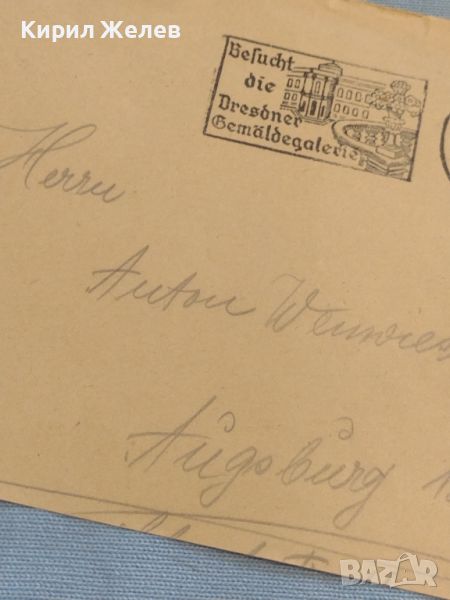 Кирил Желев
Besucht
die
Dresdner
Gemäldegalerie
Herrn
Anton
Augsburg
BAZAR